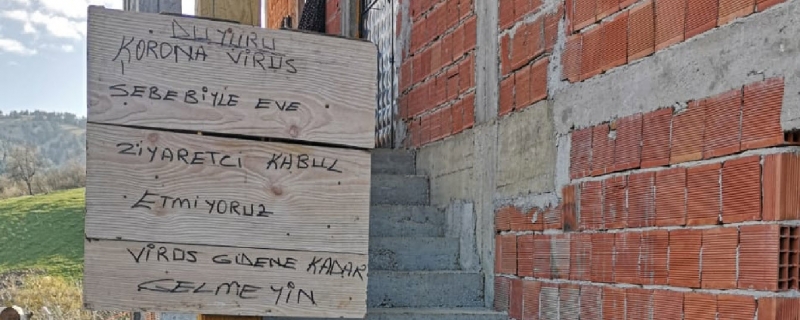 DUYURU
KORONA VİRÜS
SEBEBİYLE EVE
ZİYARETCİ KABUL
ETMİYORUZ
VİRÜS GİDENE KADAR
GELMEYİN